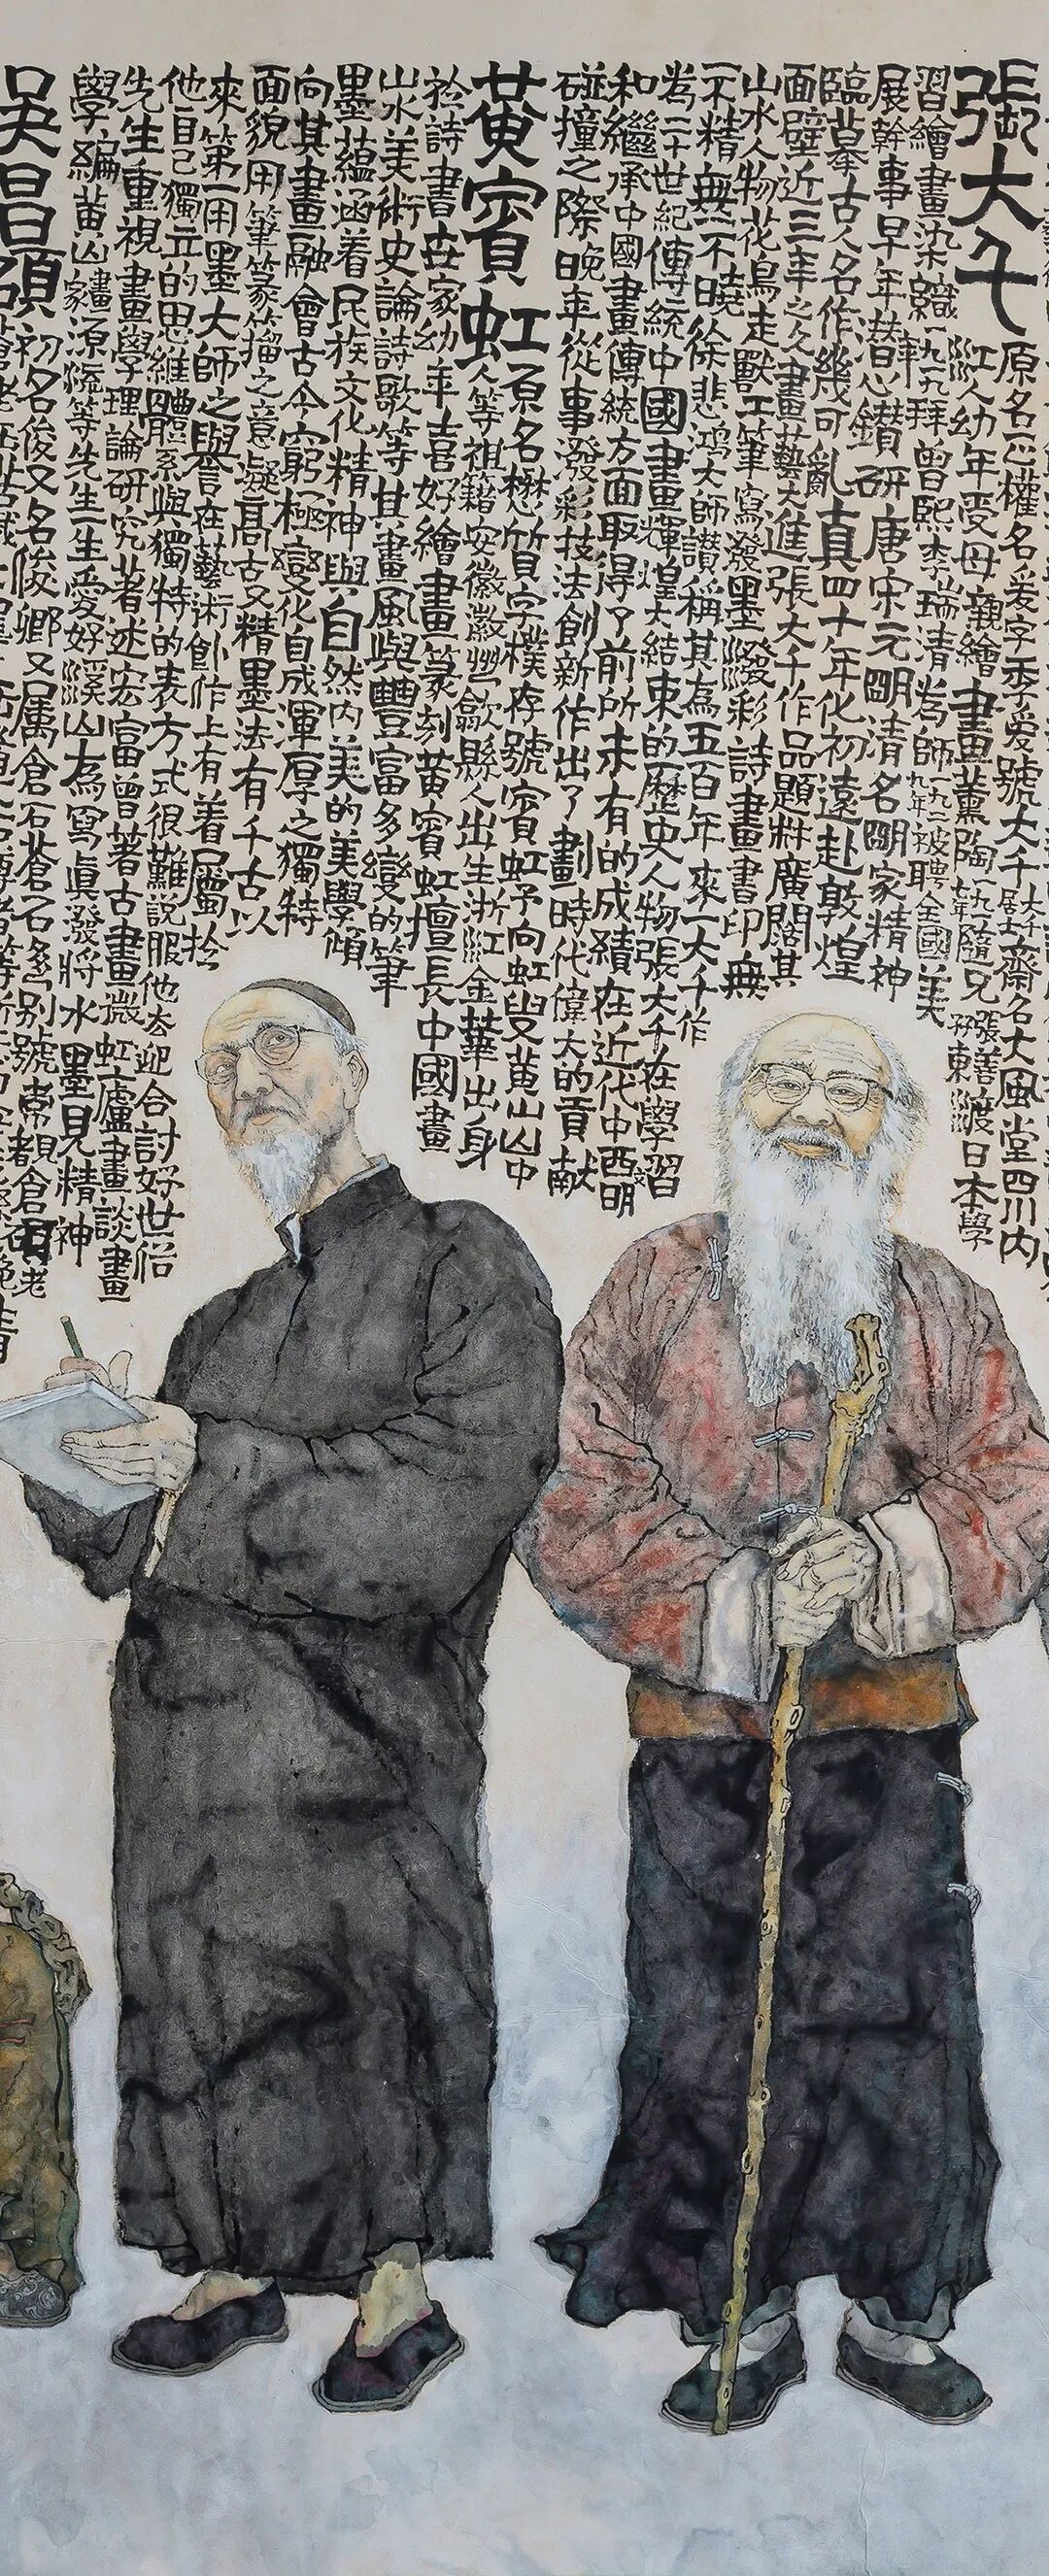 張大千原名正權名爰字季爰號大千大千居士齋名大風堂四川內
江人幼年受母親繪畫薰陶一九一七年隨兄張善孖東渡日本學
習繪畫染織一九一九年拜曾熙李瑞清為師一九二九年被聘全國美
展幹事早年潛心鑽研唐宋元明清名家精神
臨摹古人名作幾可亂真四十年代初遠赴敦煌
面壁近三年之久書畫藝大進張大千作品題材廣闊其
山水人物花鳥走獸工筆寫潑墨潑彩詩書畫書印無
一不精無不曉徐悲鴻大師讚稱其為五百年來一大千作
為二十世紀傳統中國畫輝煌大結束的歷史人物張大千在學習
和繼承中國畫傳統方面取得了前所未有的成績在近代中西文明
碰撞之際晚年從事潑彩技法創新作出了劃時代偉大的貢献
黃賓虹原名懋質字樸存號賓虹予向虹叟黃山山中
人等祖籍安徽徽州歙縣人出生浙江金華出身
於詩書世家幼年喜好繪畫篆刻黃賓虹擅長中國畫
山水美術史論詩歌等其畫風與豐富多變的筆
墨蘊涵着民族文化精神與自然內美的美學傾
向其畫融會古今窮極變化自成渾厚之獨特
面貌用筆篆籀之意凝高古又精墨法有千古以
來第一用墨大師之與譽在藝術創作上有着屬於
他自己獨立的思維體系與獨特的表方式很難說服他去迎合討好世俗
先生重視畫學理論研究著述宏富曾著古畫微虹廬畫談畫
學編黃山畫家源流等先生一生愛好溪山為寫真潑將水墨見精神
吳昌碩初名俊又名俊卿又属倉石蒼石多别號常見者倉碩老